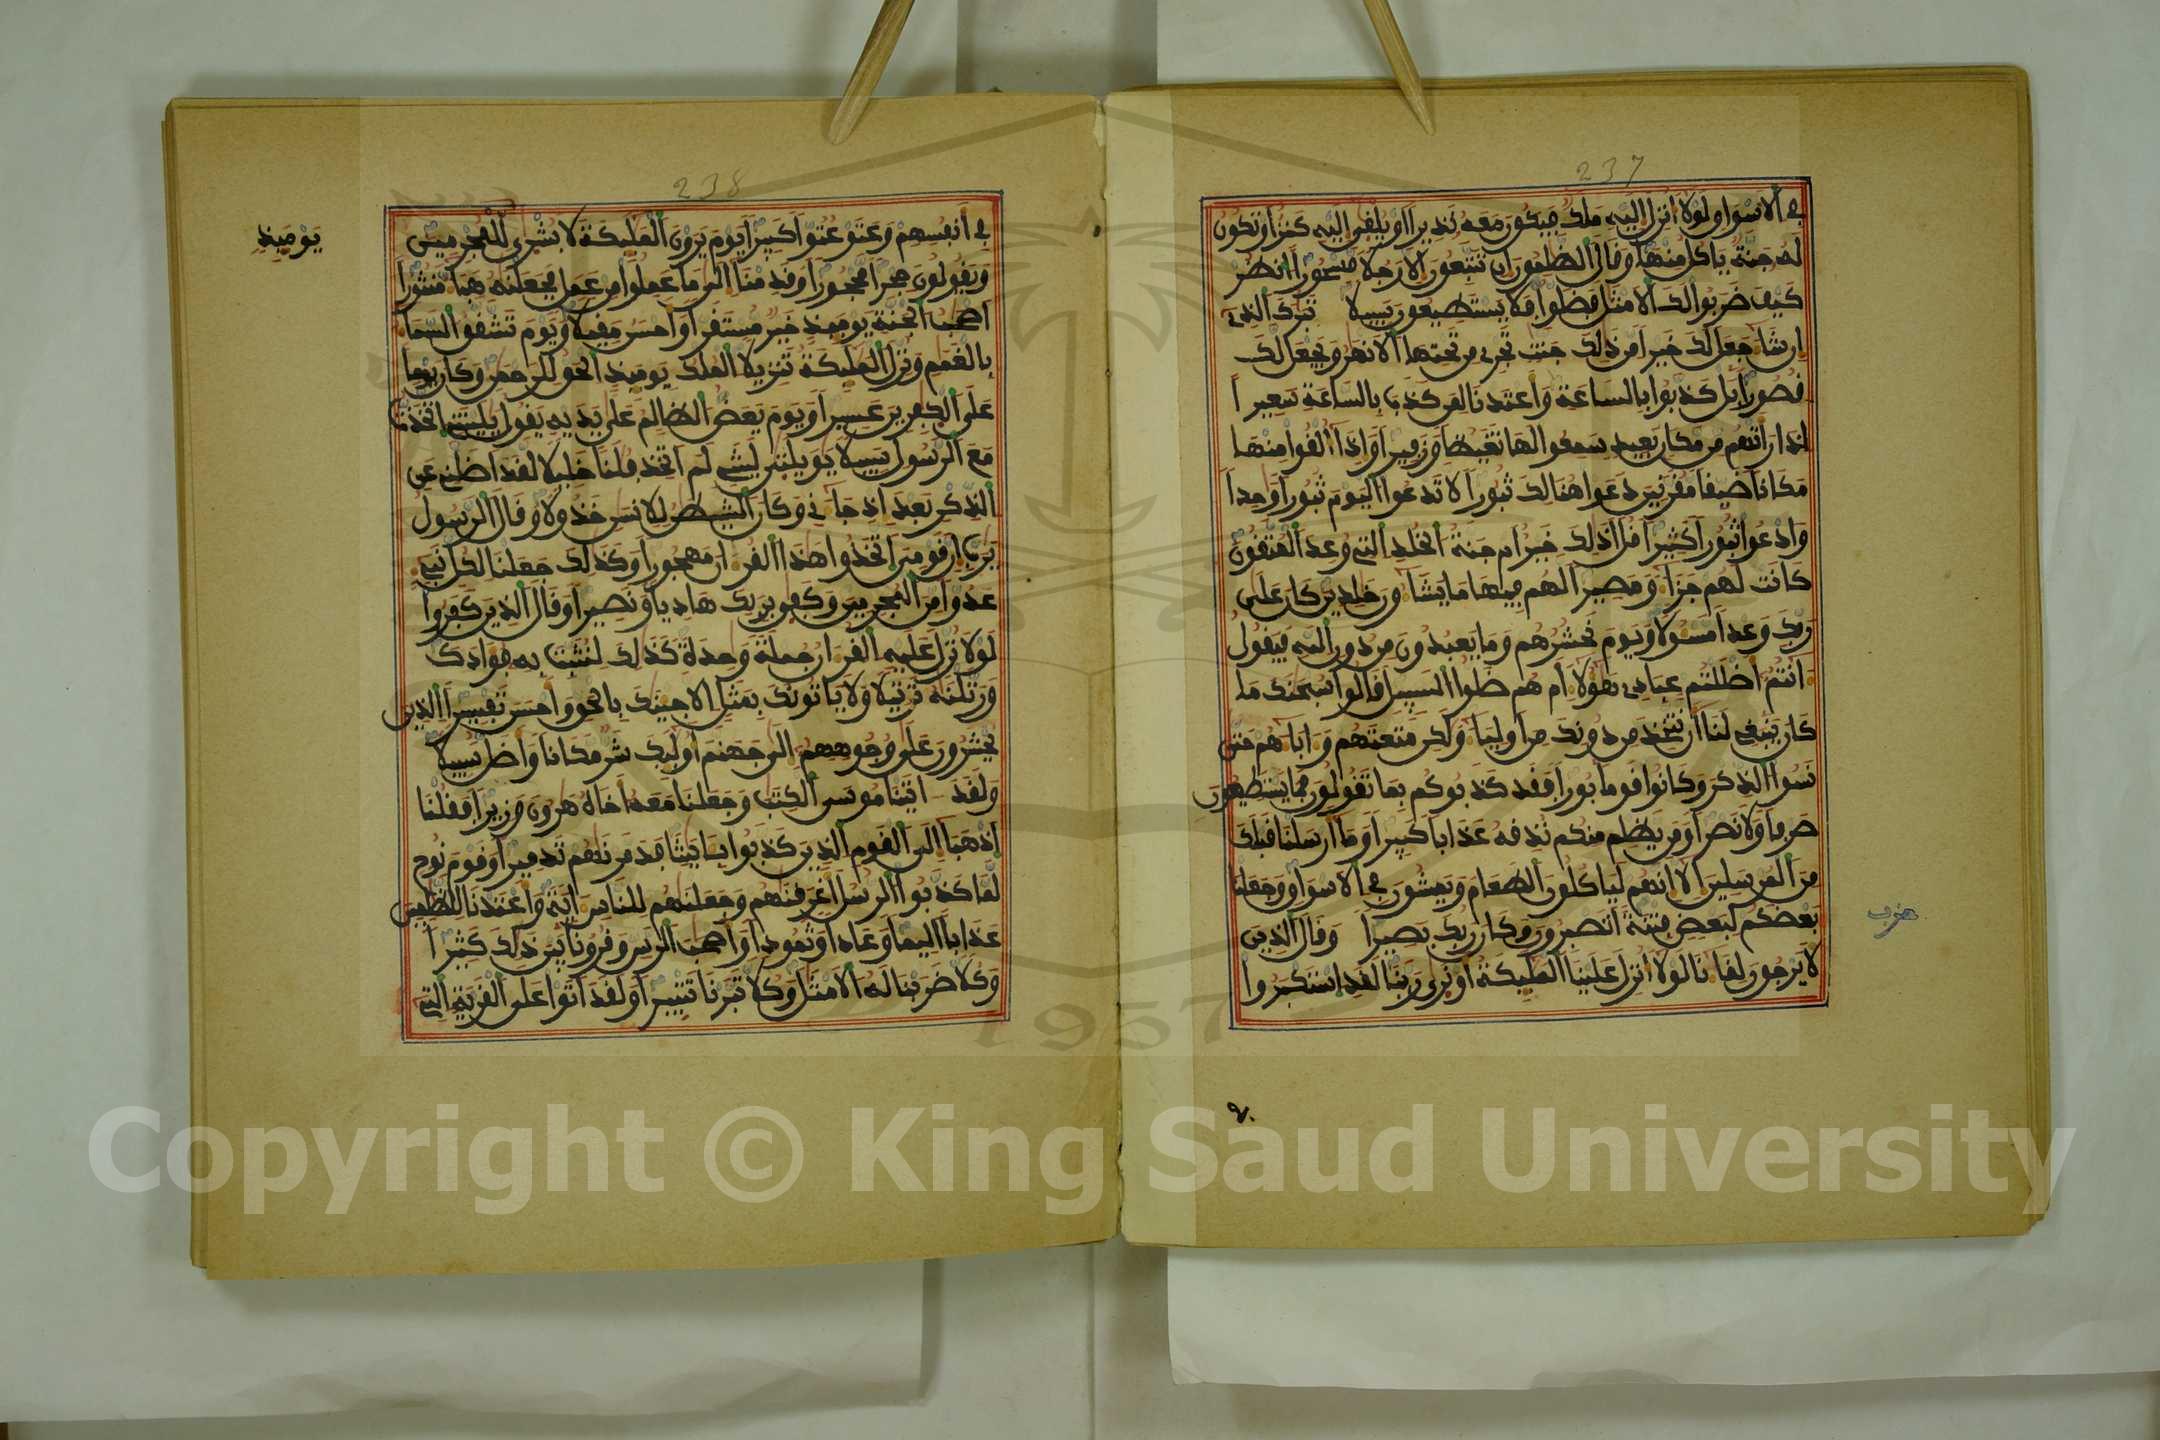 237
في الاسواو لولا أنزل إليه ملك فيكون معه نذيرا أو يلقى إليه كنز أو تكون
له جنة ياكل منها وقال الظلمون إن تتبعون إلا رجلا مسحورا انظر
كيف ضربوا لك الامثل فضلوا فلا يستطيعون سبيلا تبرك الذي
إن شا جعل لك خيرا من ذلك جنت تجري من تحتها الانهر ويجعل لك
قصورا بل كذبوا بالساعة وأعتدنا لمن كذب بالساعة سعيرا
إذا رأتهم من مكان بعيد سمعوا لها تغيظا وزفيرا وإذا ألقوا منها
مكانا ضيقا مقرنين دعوا هنالك ثبورا لا تدعوا اليوم ثبورا وحدا
وادعوا ثبورا كثيرا قل أذلك خير أم جنة الخلد التي وعد المتقون
كانت لهم جزا ومصيرا لهم فيها ما يشاون خلدين كان على
ربك وعدا مسولا ويوم نحشرهم وما يعبدون من دون الله فيقول
أانتم أضللتم عبادي هولا أم هم ضلوا السبيل قالوا سبحنك ما
كان ينبغي لنا أن نتخذ من دونك من أوليا ولكن متعتهم وءاباهم حتى
نسوا الذكر وكانوا قوما بورا فقد كذبوكم بما تقولون فما يستطيعون
صرفا ولا نصرا ومن يظلم منكم نذقه عذابا كبيرا وما أرسلنا قبلك
من المرسلين إلا إنهم لياكلون الطعام ويمشون في الاسواو وجعلنا
بعضكم لبعض فتنة أتصبرون وكان ربك بصيرا وقال الذين
لا يرجون لقانا لولا أنزل علينا المليكة أو نرى ربنا لقد استكبروا
حزب
238
في أنفسهم وعتو عتوا كبيرا يوم يرون المليكة لا بشرى للمجرمين
ويقولون حجرا محجورا وقدمنا إلى ما عملوا من عمل فجعلنه هبا منثورا
أصحب الجنة يوميذ خير مستقرا وأحسن مقيلا ويوم تشقق السما
بالغمم ونزل المليكة تنزيلا الملك يوميذ الحق للرحمن وكان يوما
على الكفرين عسيرا ويوم يعض الظالم على يديه يقول يليتني اتخذت
مع الرسول سبيلا يويلتى ليتني لم أتخذ فلنا خليلا لقد أضلني عن
الذكر بعد إذ جاني وكان الشيطن للانسن خذولا وقال الرسول
يرب إن قومي اتخذوا هذا القرءان مهجورا وكذلك جعلنا لكل نبي
عدوا من المجرمين وكفى بربك هاديا ونصيرا وقال الذين كفروا
لولا نزل عليه القرءان جملة وحدة كذلك لنثبت به فوادك
ورتلنه ترتيلا ولا ياتونك بمثل إلا جينك بالحق وأحسن تفسيرا الذين
يحشرون على وجوههم إلى جهنم أوليك شر مكانا وأضل سبيلا
ولقد اتينا موسى الكتب وجعلنا معه أخاه هرون وزيرا فقلنا
اذهبا إلى القوم الذين كذبوا بايتنا فدمرنهم تدميرا وقوم نوح
لما كذبوا الرسل أغرقنهم وجعلنهم للناس اية وأعتدنا للظلمين
عذابا أليما وعادا وثمودا وأصحب الرس وقرونا بين ذلك كثيرا
وكلا ضربنا له الامثل وكلا تبرنا تتبيرا ولقد أتوا على القرية التي
يوميذ
Copyright © King Saud University
1957